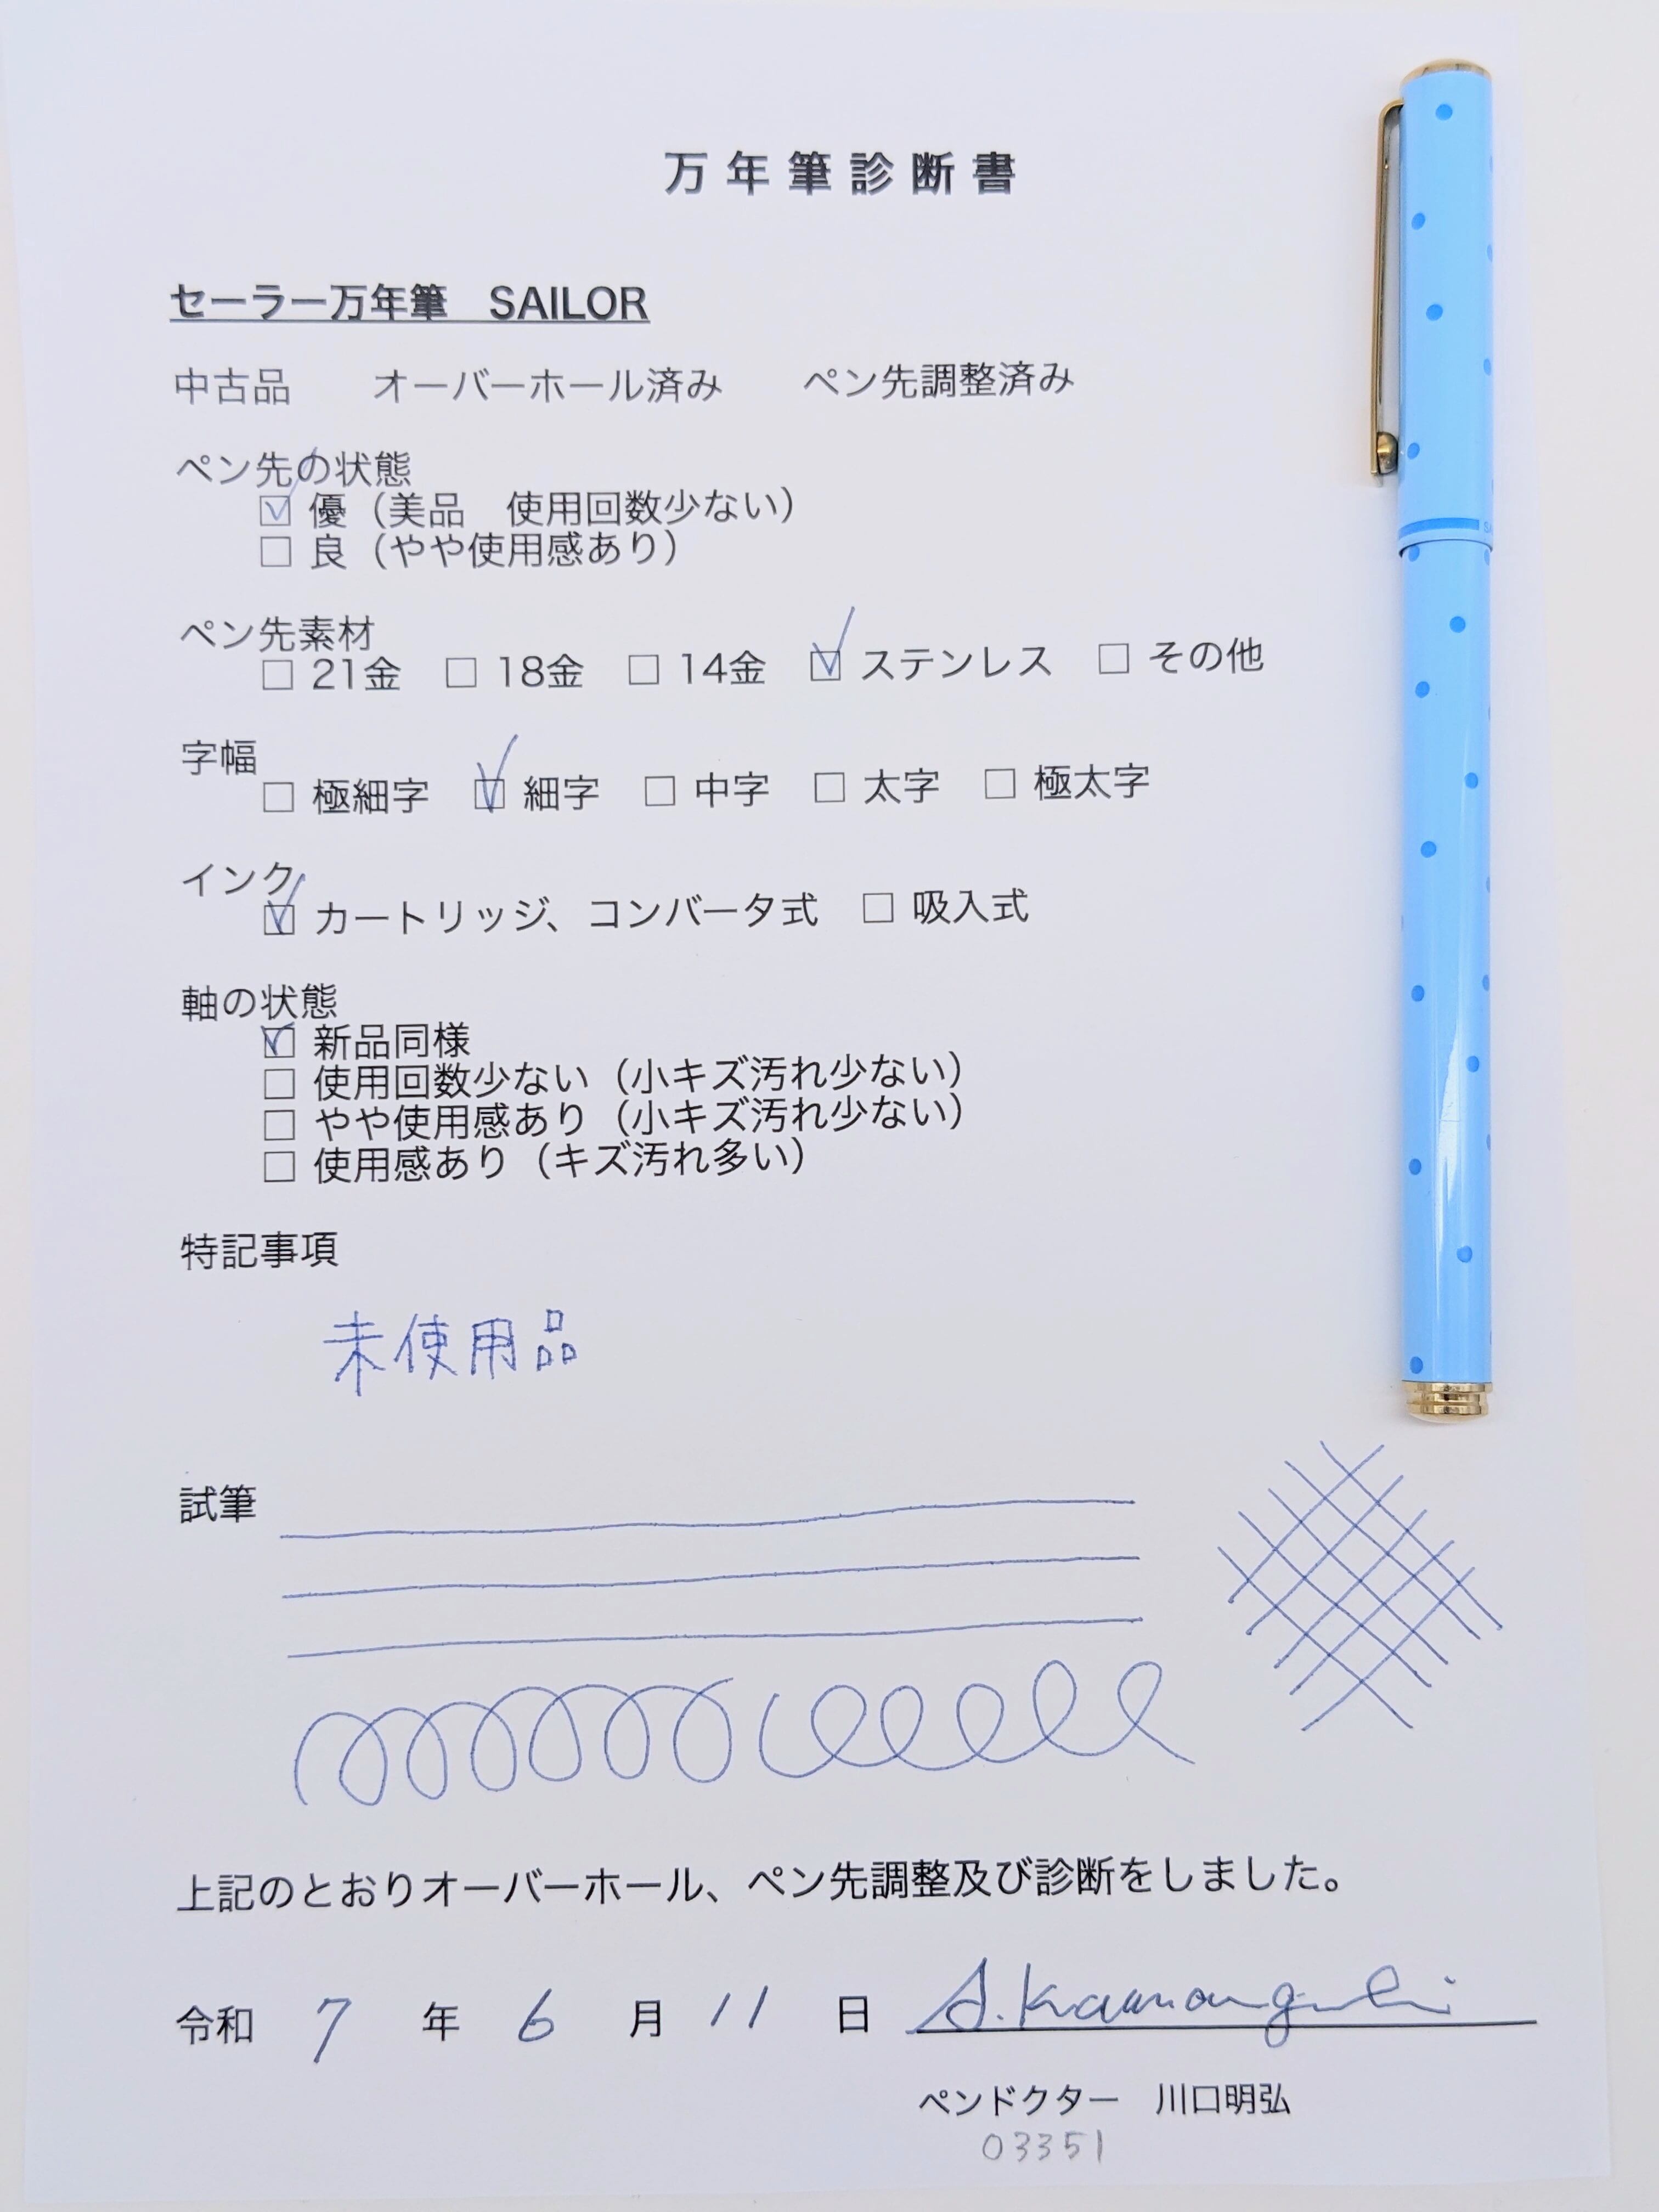 万年筆診断書
セーラー万年筆　SAILOR
中古品　　オーバーホール済み　　ペン先調整済み
ペン先の状態
☑ 優（美品　使用回数少ない）
□ 良（やや使用感あり）
ペン先素材
□ 21金　□ 18金　□ 14金　☑ ステンレス　□ その他
字幅
□ 極細字　☑ 細字　□ 中字　□ 太字　□ 極太字
インク
☑ カートリッジ、コンバータ式　□ 吸入式
軸の状態
☑ 新品同様
□ 使用回数少ない（小キズ汚れ少ない）
□ やや使用感あり（小キズ汚れ少ない）
□ 使用感あり（キズ汚れ多い）
特記事項
未使用品
試筆
上記のとおりオーバーホール、ペン先調整及び診断をしました。
令和 7 年 6 月 11 日 A.Kawaguchi
ペンドクター　川口明弘
03351